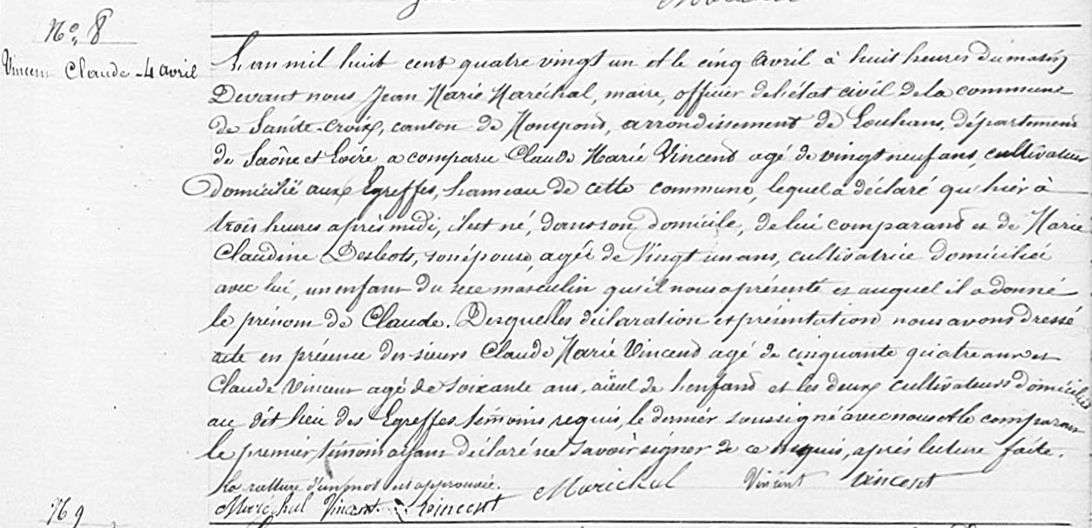 No. 8
Vincent Claude - 4 avril
L'an mil huit cent quatre vingt un et le cinq avril à huit heures du matin
Devant nous Jean Marie Maréchal, maire, officier de l'état civil de la commune
de Sainte-Croix, canton de Montpond, arrondissement de Louhans, département
de Saône et Loire a comparu Claude Marie Vincent agé de vingt neuf ans, cultivateur
domicilié aux Egreffes, hameau de cette commune, lequel a déclaré qu'hier à
trois heures après midi, il est né, dans son domicile, de lui comparant et de Marie
Claudine Desbots, son épouse, agée de Vingt un ans, cultivatrice domiciliée
avec lui, un enfant du sexe masculin qu'il nous a présenté et auquel il a donné
le prénom de Claude. Desquelles déclaration et présentation nous avons dressé
acte en présence des sieurs Claude Marie Vincent agé de cinquante quatre ans et
Claude Vincent agé de soixante ans, aïeul de l'enfant et les deux cultivateurs domiciliés
au dit lieu des Egreffes témoins requis, le dernier soussigné avec nous et le comparant
le premier témoin ayant déclaré ne savoir signer de ce requis, après lecture faite.
La rature d'un mot est approuvée.
Maréchal Vincent Vincent
Maréchal Vincent Vincent
No 9